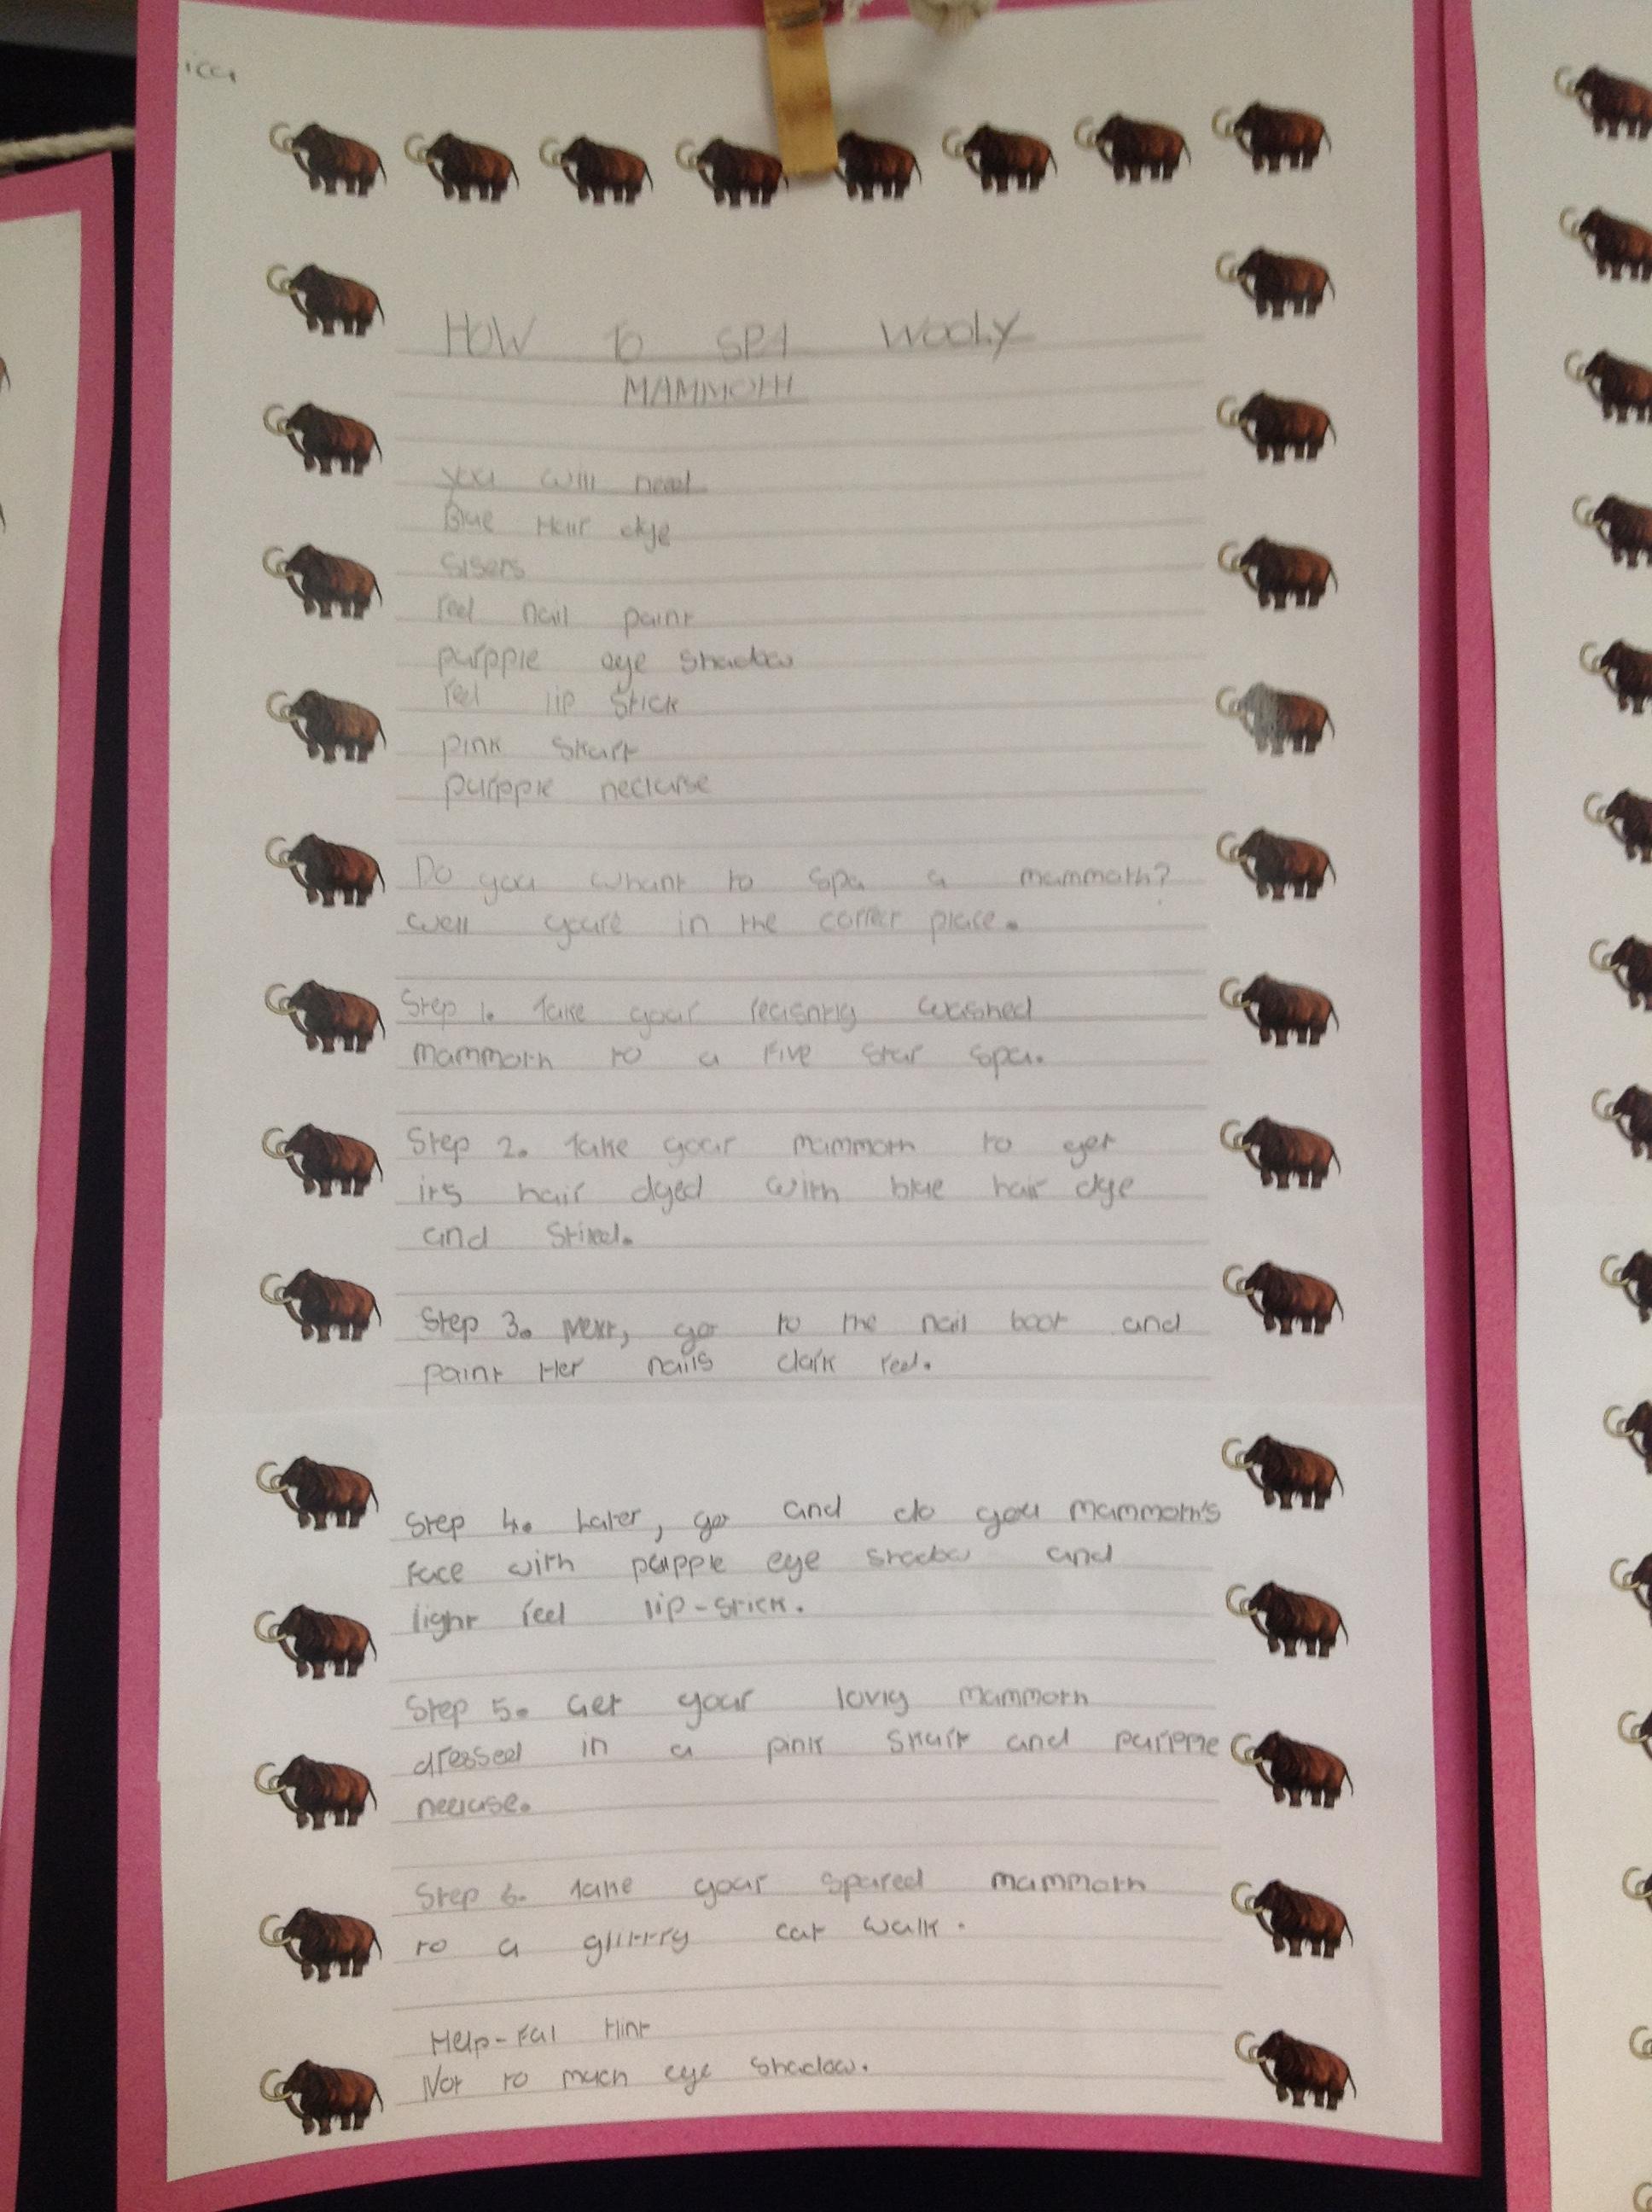 HOW TO SPA WOOLY
MAMMOTH
you will need
Blue Hair dye
sisers
red nail paint
purpple eye shadow
red lip stick
pink skurt
purpple neclase
Do you whant to spa a mammoth?
well youre in the correct place.
Step 1. Take your washed
mammoth to a five star spa.
Step 2. Take your mammoth to get
its hair dyed with blue hair dye
and
Step 3. Next, go to the nail boot and
paint Her nails dark red.
Step 4. Later, go and do you mammoth's
face with purpple eye shadow and
light red lip-stick.
Step 5. Get your lovly mammoth
dressed in a pink skurt and purpple
neclase.
Step 6. Take your spared mammoth
to a glittry cat walk.
Help-ful Hint
Not to much eye shadow.